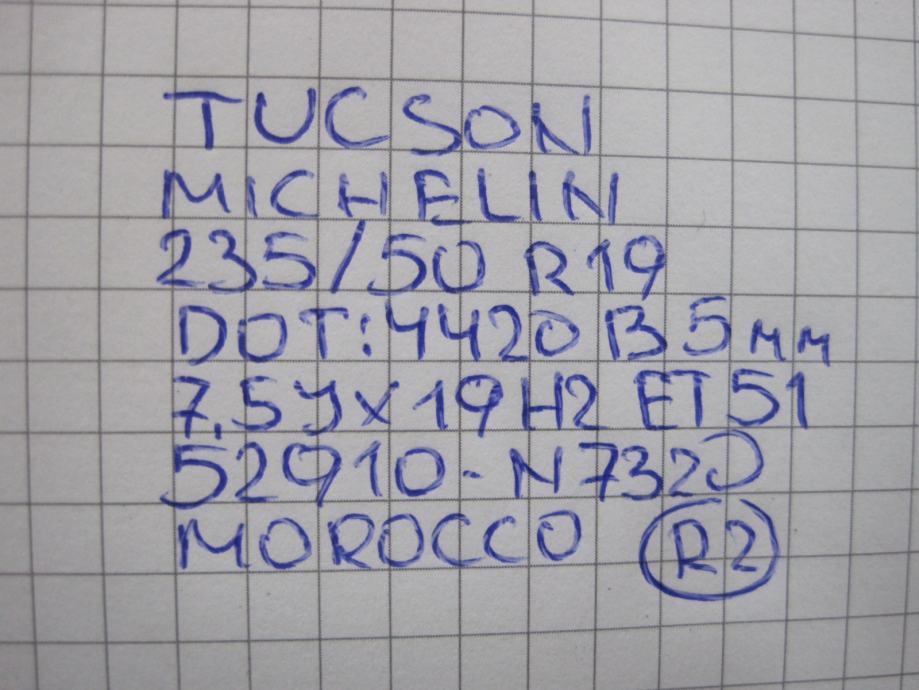 TUCSON
MICHELIN
235/50 R19
DOT:4420 B 5мм
7.5Jx19 H2 ET51
52910-N7320
MOROCCO R2